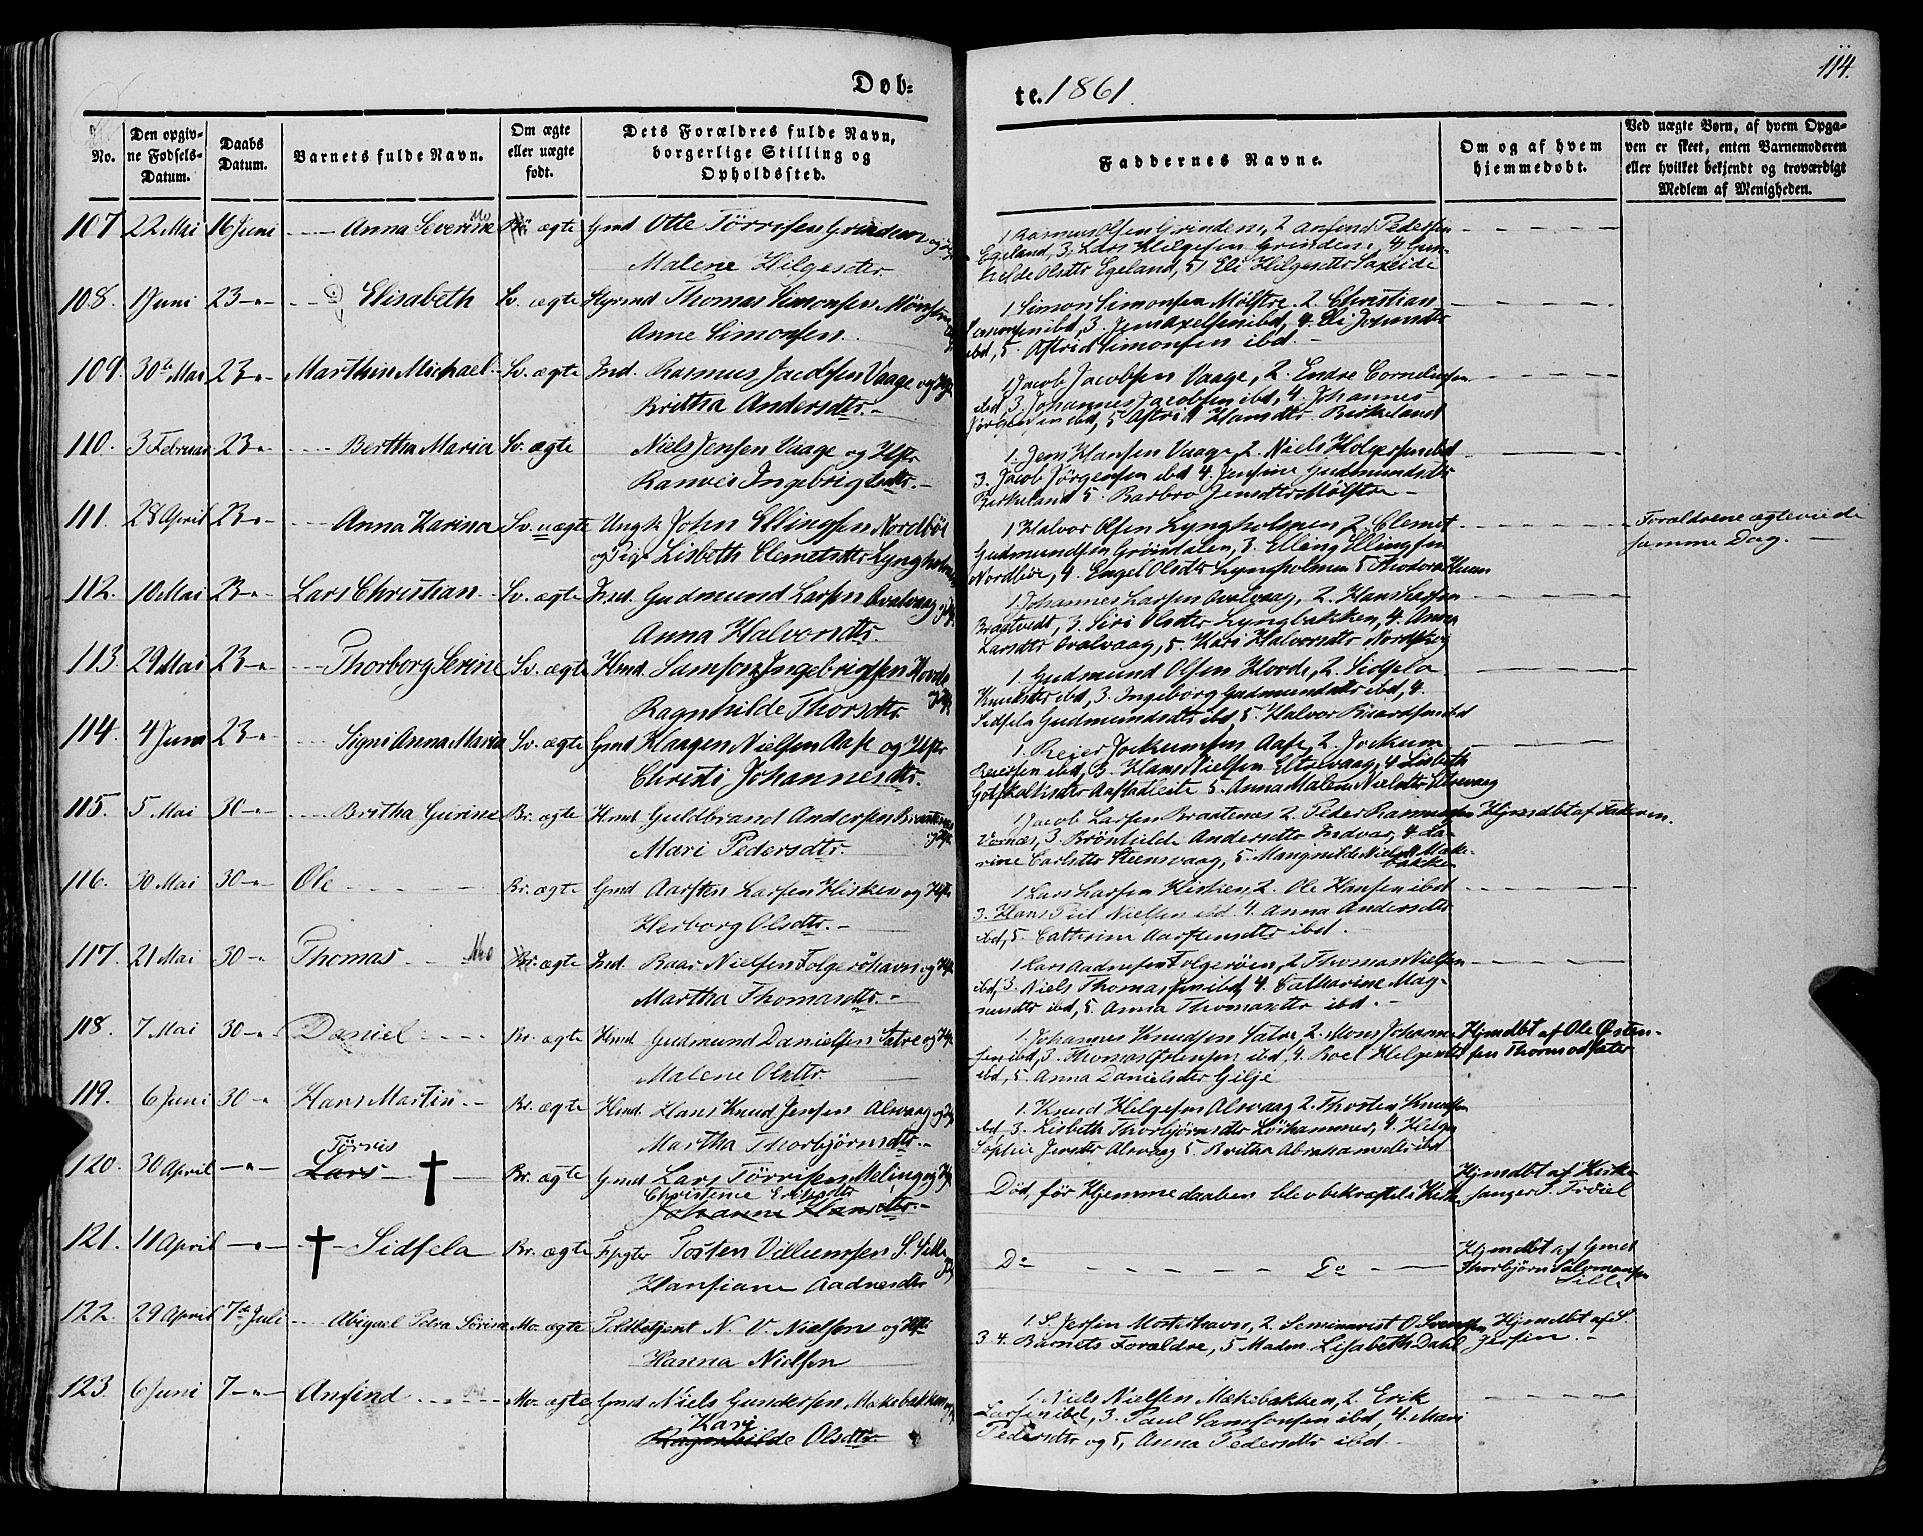 Døb=
te. 1861.
114.
No.
Den opgiv-
ne Fødsels-
Datum.
Daabs
Datum.
Barnets fulde Navn.
Om ægte
eller uægte
født.
Dets Forældres fulde Navn,
borgerlige Stilling og
Opholdssted.
Faddernes Navne.
Om og af hvem
hjemmedøbt.
Ved uægte Børn, af hvem Opga-
ven er skeet, enten Barnemoderen
eller hvilket bekjendt og troværdigt
Medlem af Menigheden.
107. 22 Mai 16 Juni Anna Severine ægte Gmd Otte Tørrisen Grindem og
Malene Helgesdtr.
1 Rasmus Olsen Grindem, 2 Anfind Pedersen
Egeland, 3, Lars Helgesen Grindem, 4 Gun-
hilde Olsdtr Egeland, 5, Eli Helgesdtr
108. 1 Juni 23 Elisabeth Sv. ægte Styrmd Thomas Simonsen
Anne Simonsen.
1. Simon Simonsen Mølstre. 2. Christian
Simonsen ibd, 3. Jens Axelsen ibd, 4. Eli
ibd, 5. Astrid Simonsen ibd.
109. 30te Mai 23 Marthin Michael Sv. ægte Ind. Rasmus Vaage og Hst
Britha Andersdtr.
1 Jacob Jacobsen Vaage, 2. Endre Corneliusen
ibd, 3 Johannes Jacobsen ibd, 4. Johannes
Jørgensen ibd, 5 Astrid Hansdtr Birkeland
110. 3 Februar 23 Bertha Maria Sv. ægte Niels Jensen Vaage og Hst
Ranvei Ingebrigtsdtr.
1. Jens Hansen Vaage, 2. Niels Holgersen ibd
3. Jacob Jørgensen ibd 4. Jensine Gudmundsdtr
Birkeland 5. Barbro Jensdtr Mølstre
111. 28 April 23 Anna Karina Sv. uægte Ungk. John Ellingsen Nordbøe
og Pige Lisbeth Clemetsdtr Lyngholmen
1 Halvor Olsen Lyngholmen, 2. Clemet
Gudmundsen Grøndalen, 3. Elling Ellingsen
Nordbøe, 4. Engel Olsdtr Lyngholmen 5
Forældrene ægteviede
samme Dag.
112. 10 Mai 23 Lars Christian Sv. ægte Ind. Gudmund Larsen Avalvaag
Anna Halvorsdtr.
1. Johannes Larsen Avalvaag, 2. Hans Larsen
Braatvedt, 3. Siri Olsdtr Lyngbakken, 4. Anna
Larsdtr Avalvaag, 5. Kari Halvorsdtr
113. 29 Mai 23 Thorborg Serine Sv. ægte Hmd. Samson Ingebrigtsen Hovde
Ragnhilde Thorsdtr.
1. Gudmund Olsen Hovde, 2. Sidsela
Knudsdtr ibd, 3. Ingeborg Gudmundsdtr ibd, 4.
Sidsela Gudmundsdtr ibd, 5. Halvor Baardsen ibd
114. 4 Juni 23 Signi Anna Maria Sv. ægte Gmd Haagen Nielsen Aase og Hst
Christi Johannesdtr.
1. Reier Jockumsen Aase, 2. Jockum
Reiersen ibd, 3. Hans Nielsen Eltrevaag, 4 Lisbeth
5. Anna Malene Nielsdtr Eltrevaag
115. 5 Mai 30 Britha Gurine Br. ægte Hmd Guldbrand Andersen
Mari Pedersdtr.
1 Jacob Larsen Braatenæs 2. Peder Rasmussen
Vernæs, 3 Brønhilde Andersdtr Indvær, 4 La-
rine Carlsdtr Steensvaag, 5. Mangnilde Nielsdtr Mæke-
bakken
Hjemdbt af Faderen.
116. 30 Mai 30 Ole Br. ægte Gmd Aarsten Larsen Hisken og
Herborg Olsdtr.
1. Lars Larsen Hisken, 2. Ole Hansen ibd
3. Hans Nielsen ibd 4. Anna Andersdtr
ibd, 5. Cathrine Aarstensdtr ibd.
117. 21 Mai 30 Thomas Mo ægte Ind. Roar Nielsen Folgerøhavn og
Martha Thomasdtr.
1 Lars Aadnesen Folgerøen, 2 Thomas Nielsen
ibd, 3. Niels Thomassen ibd, 4. Catharine Mag-
nusdtr ibd, 5. Anna Thomasdtr ibd.
118. 7 Mai 30 Daniel Br. ægte Hmd. Gudmund Danielsen Sætre og
Malene Olsdtr.
1. Johannes Knudsen Sætre, 2. Mons Johanne-
sen ibd, 3. Thomas ibd, 4. Roel Helgesdtr
ibd, 5. Anna Danielsdtr Gilje
Hjemdbt af Ole Østen-
sen Thormodsæter
119. 6 Juni 30 Hans Martin Br. ægte Hmd. Hans Knud Jensen Alsvaag og
Martha Thorbjørnsdtr.
1. Knud Helgesen Alsvaag 2. Thosten Knudsen
ibd, 3. Lisbeth Thorbjørnsdtr 4. Helga
Sophie Jensdtr Alsvaag 5. Britha Abrahamsdtr ibd
120. 30 April Tørris
Lars † Br. ægte Gmd Lars Tørrisen Meling og
Christense Eriksdtr
Johanne Hansdtr.
Død, før Hjemmedaaben blev bekræftet i Kirken
Hjemdbt af Kirke-
sanger T. Frøiel
121. 11 April † Sidsela Br. ægte Tosten Villumsen S. Sille
Hansiane Aadnesdtr
Do Do
Hjemdbt af Gmd
Thorbjørn Salomonsen
Sille
122. 29 April 7de Juli Abigael Petra Sørine Mo. ægte Toldbetjent N. V. Nielsen og Hst
Hanna Nielsen
1. S. Jersin Mosterhavn, 2. Seminarist O Svensen
3. 4. Barnets Forældre, 5 Madm. Lisabeth Dahl
Hjemdbt af S.
Jersin.
123. 6 Juni 7 Anfind Mo. ægte Gmd Niels Gundersen Mækebakken og
Kari
Ragnhilde Olsdtr
1. Niels Nielsen Mækebakken, 2. Erik
Larsen ibd, 3. Paul Samsonsen ibd, 4. Mari
Pedersdtr og 5, Anna Pedersdtr ibd.